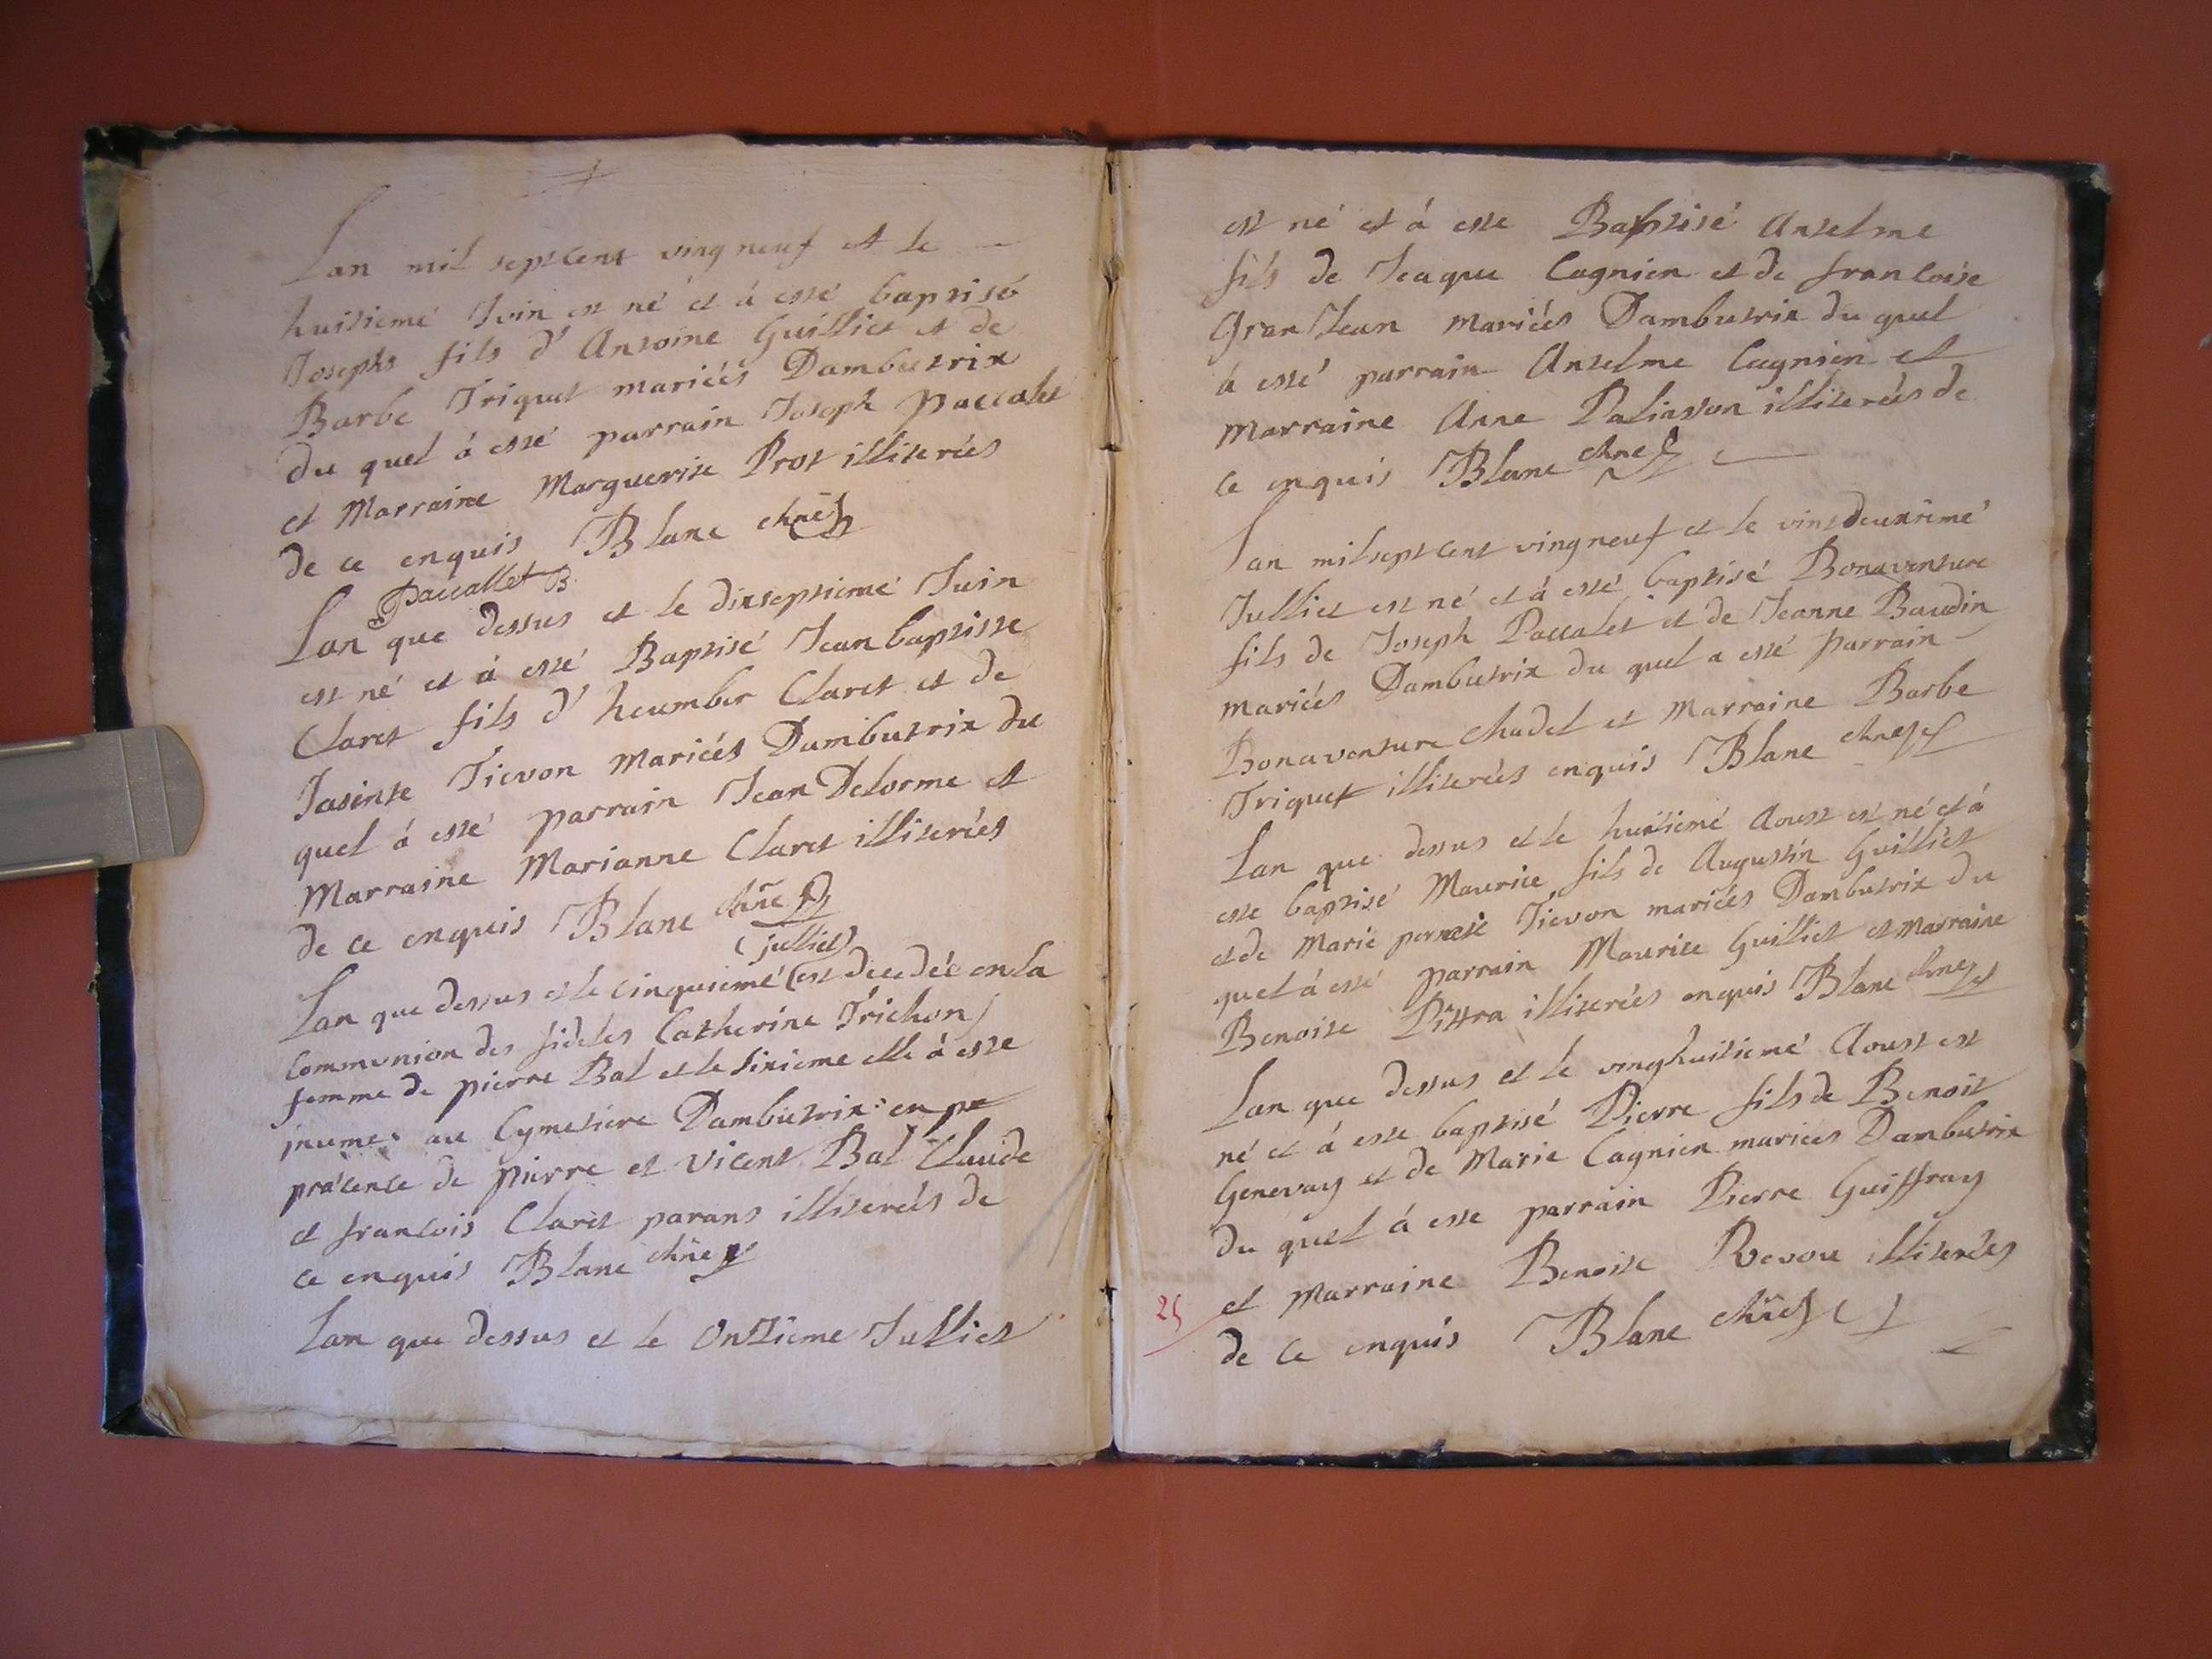 Lan mil septcent ving neuf et le
huitiemé Juin est né et á esté baptisé
Josephs fils d' Antoine Guilliet et de
Barbe Triquet mariées Dambutrix
du quel á esté parrain Joseph Paccalet
et Marraine Marguerite Prot illiterées
de ce enquis Blanc chne
Paccallet B.
Lan que dessus et le dixseptiemé Juin
est né et á esté Baptisé Jean baptiste
Claret fils d' heumber Claret et de
Jasinte Tievon Mariées Dambutrix du
quel á esté parrain Jean Delorme et
Marraine Marianne Claret illiterées
de ce enquis Blanc chne
(julliet)
Lan que dessus et le cinquiemé (est decedée en la
Communion des fideles Catherine Trichon
femme de pierre Bal et le sixieme elle á este
jnumeé au Cymetiere Dambutrix: en pr
présence de pierre et Vicent Bal Claude
et francois Claret parans illiterées de
ce enquis Blanc chne
Lan que dessus et le Onzieme Julliet
est né et á este Baptisé Antelme
fils de Jeaque Cagnien et de francoise
Gran Jean mariées Dambutrix du quel
á esté parrain Antelme Cagnien et
Marraine Anne Paliasson illiterées de
ce enquis Blanc chne
Lan mil septcent vingneuf et le vintdeuxiemé
Julliet est né et á esté baptisé Bonaventure
fils de Joseph Paccalet et de Jeanne Baudin
mariées Dambutrix du quel a esté parrain
Bonaventure Chadel et Marraine Barbe
Triquet illiterées enquis Blanc chne
Lan que dessus et le huitiemé Aoust est né et á
este baptisé Maurice fils de Augustin Guilliet
et de Marie pernete Tievon mariées Dambutrix du
quel á esté parrain Maurice Guilliet et Marraine
Benoite Pittra illiterées enquis Blanc chne
Lan que dessus et le vinghuitiemé Aoust est
né et á este baptisé Pierre fils de Benoit
Genevay et de Marie Cagnien mariées Dambutrix
du quel á este parrain Pierre Guiffray
et Marraine Benoite Revou illiterées
25
de ce enquis Blanc chne